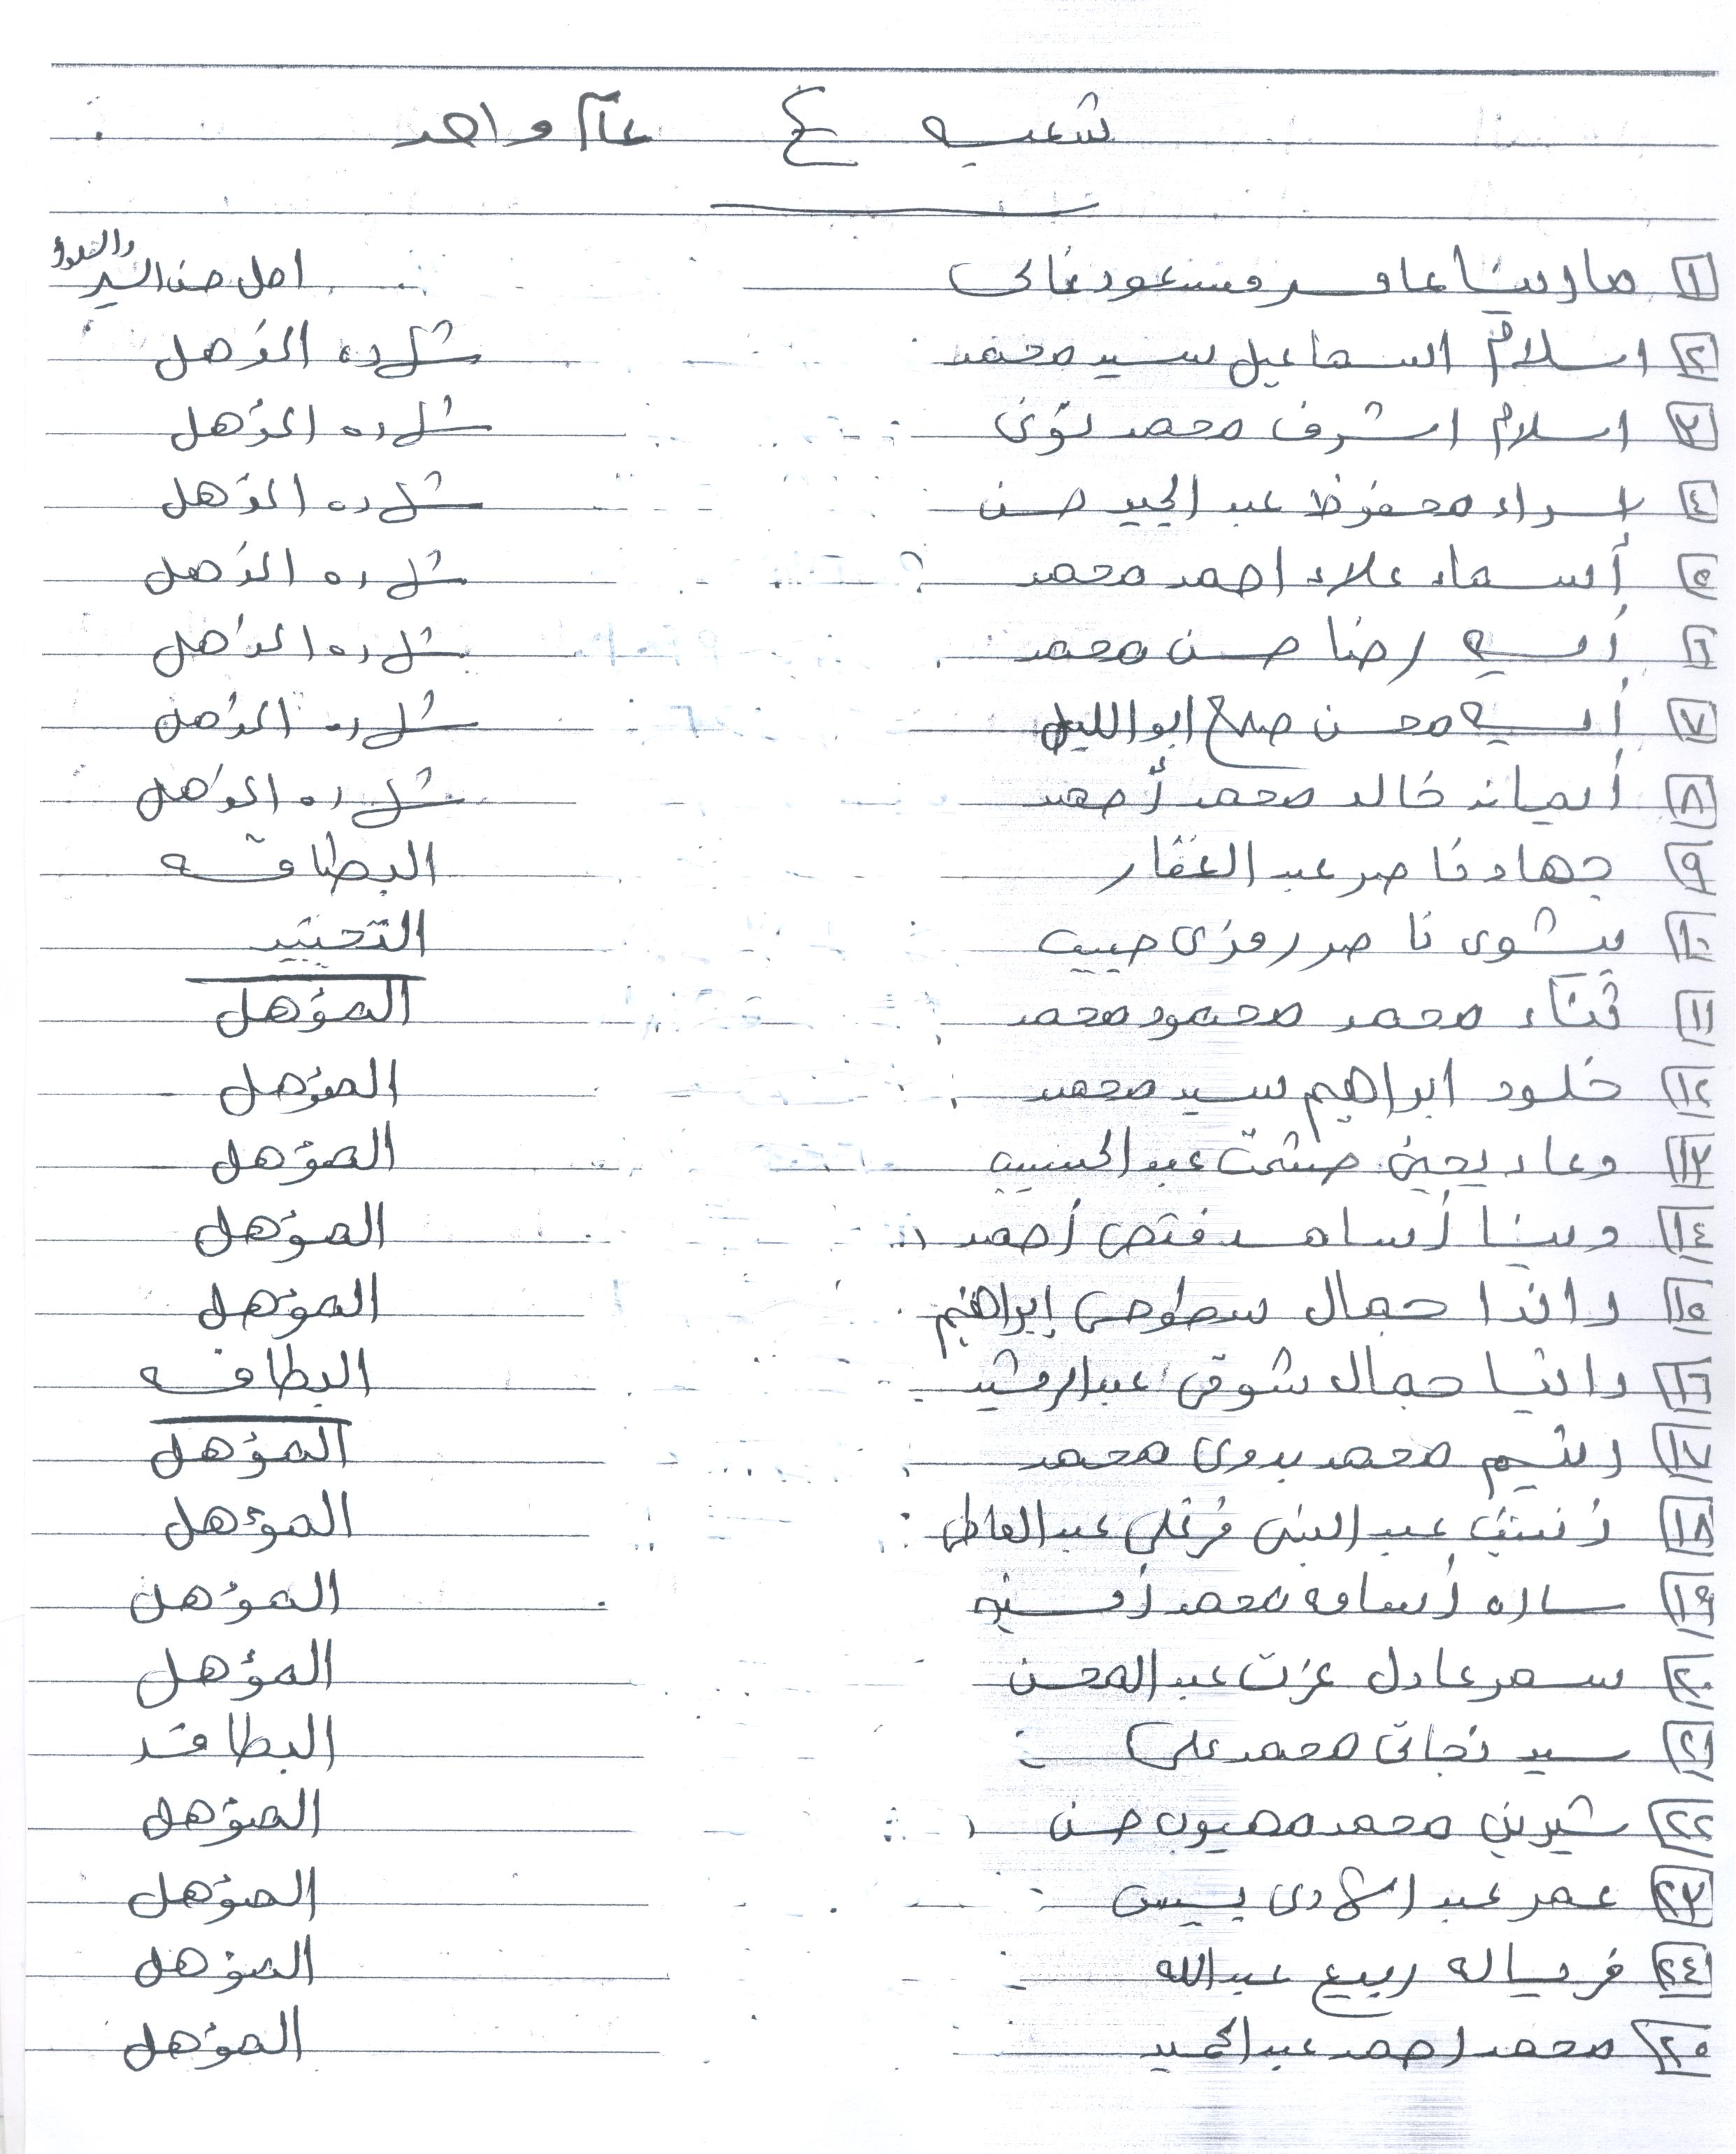 شعبه ع عام واحد
١ مارينا عامر مسعود غالى اصل حسن السير والسلوك
٢ اسلام اسماعيل سيد محمد شهاده المؤهل
٣ اسلام اشرف محمد شهاده المؤهل
٤ اسراء محفوظ عبد المجيد حسن شهاده المؤهل
٥ أسماء علاء احمد محمد شهاده المؤهل
٦ أيه رضا حسن محمد شهاده المؤهل
٧ أيه محسن صلاح ابو الليل شهاده المؤهل
٨ أيمان خالد محمد أحمد شهاده المؤهل
٩ جهاد ناصر عبد الغفار البطاقه
١٠ بيشوى ناصر رمزى حبيب التجنيد
١١ ثناء محمد محمود محمد المؤهل
١٢ خلود ابراهيم سيد محمد المؤهل
١٣ دعاء يحيى حشمت عبد الحسيب المؤهل
١٤ دينا أسامه فتحى أحمد المؤهل
١٥ راندا جمال سطوحى إبراهيم المؤهل
١٦ رانيا جمال شوقى عبد الرشيد البطاقه
١٧ محمد بدوى محمد المؤهل
١٨ زينب عبد النبى فرغلى عبد العاطى المؤهل
١٩ ساره أسامه محمد المؤهل
٢٠ سمر عادل عزت عبد المحسن المؤهل
٢١ سيد نجاتى محمد على البطاقه
٢٢ شيرين محمد مهيوب حسن المؤهل
٢٣ عمر عبد الهادى يسن المؤهل
٢٤ فرياله ربيع عبدالله المؤهل
٢٥ محمد احمد عبد الحميد المؤهل